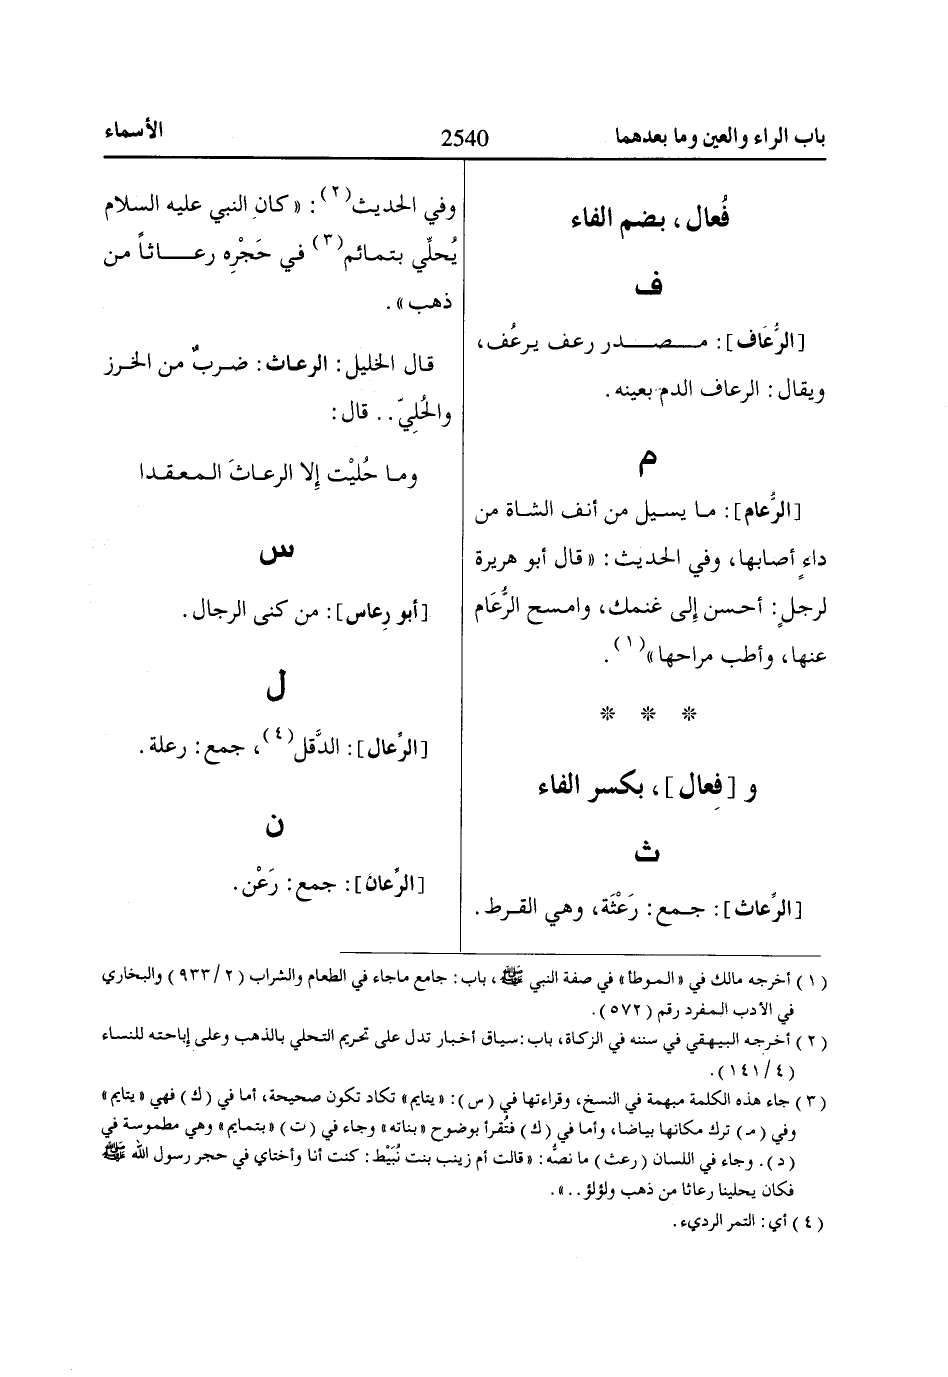 باب الراء والعين وما بعدهما
2540
الأسماء
فُعال، بضم الفاء
ف
[الرُّعَاف]: مصدر رعف يرعُف،
ويقال: الرعاف الدم بعينه.
م
[الرُّعام]: ما يسيل من أنف الشاة من
داءٍ أصابها، وفي الحديث: «قال أبو هريرة
لرجلٍ: أحسن إلى غنمك، وامسح الرُّعَام
عنها، وأطب مراحها»(١).
* * *
و [فِعال]، بكسر الفاء
ث
[الرِّعاث]: جمع: رَعْثَة، وهي القرط.
وفي الحديث(٢): «كان النبي عليه السلام
يُحلِّي بتمائم(٣) في حَجْرِه رعاثاً من
ذهب».
قال الخليل: الرعاث: ضربٌ من الخرز
والحُلِيّ.. قال:
وما حُليْت إلا الرعاثَ المعقدا
س
[أبو رِعاس]: من كنى الرجال.
ل
[الرِّعال]: الدَّقل(٤)، جمع: رعلة.
ن
[الرِّعان]: جمع: رَعْن.
(١) أخرجه مالك في «الموطأ» في صفة النبي ﷺ، باب: جامع ماجاء في الطعام والشراب (٩٣٣/٢) والبخاري
في الأدب المفرد رقم (٥٧٢).
(٢) أخرجه البيهقي في سننه في الزكاة، باب: سياق أخبار تدل على تحريم التحلي بالذهب وعلى إباحته للنساء
(١٤١/٤).
(٣) جاء هذه الكلمة مبهمة في النسخ، وقراءتها في (س): «يتايم» تكاد تكون صحيحة، أما في (ك) فهي «يتايم»
وفي (م) ترك مكانها بياضا، وأما في (ك) فتُقرأ بوضوح «بناته» وجاء في (ت) «بتمايم» وهي مطموسة في
(د). وجاء في اللسان (رعث) ما نصُّه: «قالت أم زينب بنت نُبَيْط: كنت أنا وأختاي في حجر رسول الله ﷺ
فكان يحلينا رعاثا من ذهب ولؤلؤ..».
(٤) أي: التمر الرديء.